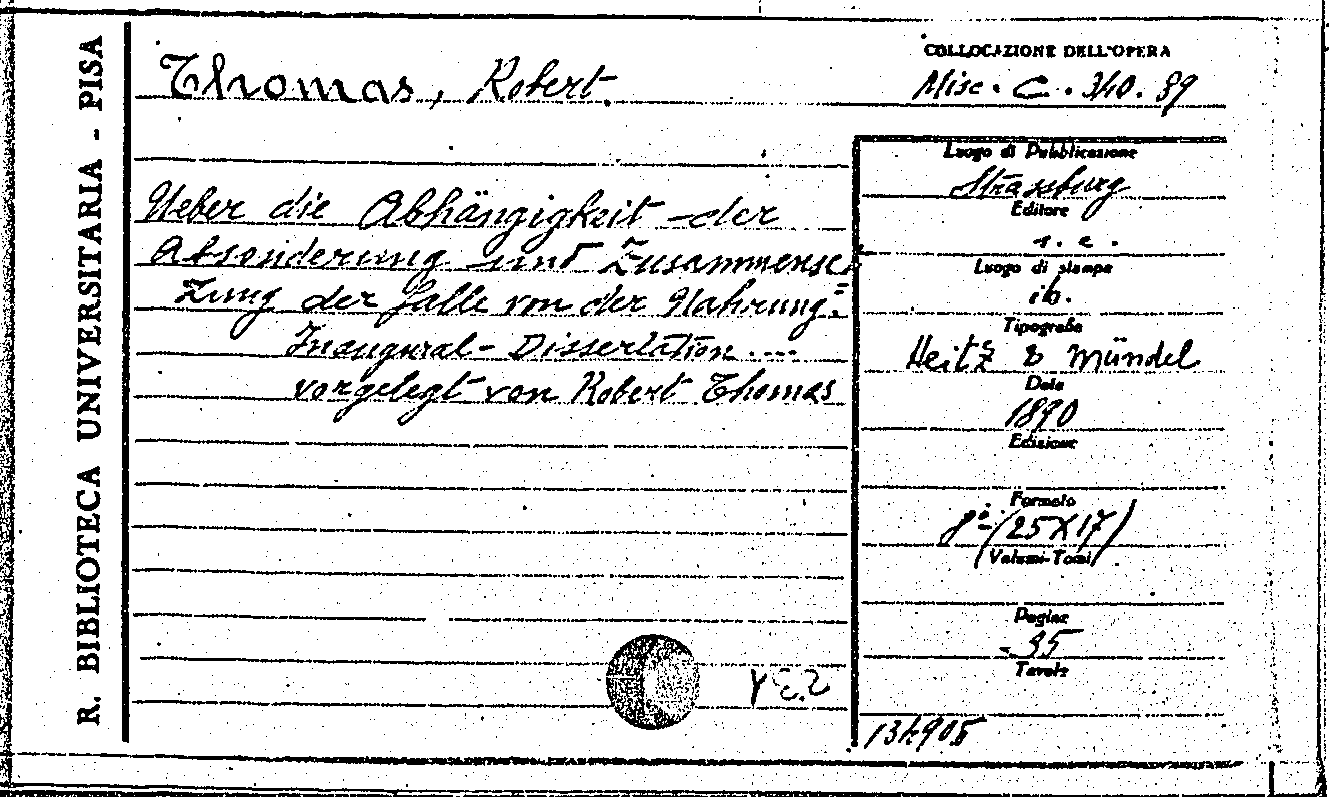 R. BIBLIOTECA UNIVERSITARIA - PISA
Thomas, Robert.
COLLOCAZIONE DELL'OPERA
Misc. C. 340. 89
Ueber die Abhängigkeit der
Absonderung und Zusammenset
zung der Galle von der Nahrung:
Inaugural-Dissertation ....
vorgelegt von Robert Thomas
Luogo di Pubblicazione
Strassburg
Editore
s. e.
Luogo di stampa
ib.
Tipografia
Heitz & Mündel
Data
1890
Edizione
Formato
8º (25X17)
Volumi-Tomi
Pagine
35
Tavole